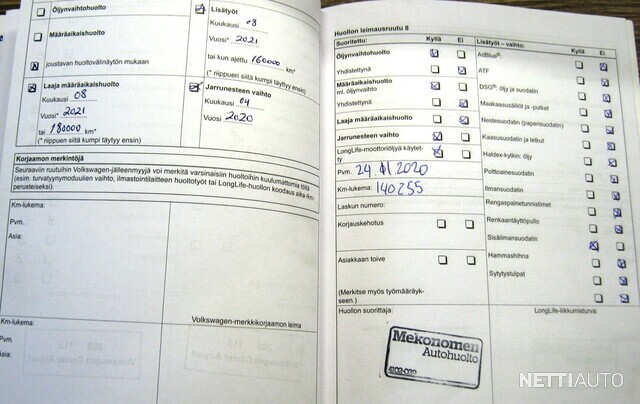 Öljynvaihtohuolto
Määräaikaishuolto
joustavan huoltovälinäytön mukaan
Laaja määräaikaishuolto
Kuukausi 08
Vuosi* 2021
tai 180000 km*
(* riippuen siitä kumpi täyttyy ensin)
Lisätyöt
Kuukausi 08
Vuosi* 2021
tai kun ajettu 160000 km*
(* riippuen siitä kumpi täyttyy ensin)
Jarrunesteen vaihto
Kuukausi 04
Vuosi 2020
Korjaamon merkintöjä
Seuraaviin ruutuihin Volkswagen-jälleenmyyjä voi merkitä varsinaisiin huoltoihin kuulumattomia töitä
(esim. turvatyynymoduulien vaihto, ilmastointilaitteen huoltotyöt tai LongLife-huollon koodaus aika-/km-
perusteiseksi).
Km-lukema:
Pvm.
Asia:
Km-lukema:
Volkswagen-merkkikorjaamon leima
Pvm.
Asia:
Huollon leimausruutu 8
Suoritettu: Kyllä Ei
Öljynvaihtohuolto
Yhdistettynä
Määräaikaishuolto
ml. öljynvaihto
Yhdistettynä
Laaja määräaikaishuolto
Jarrunesteen vaihto
LongLife-moottoriöljyä käytet-
ty
Pvm. 24.01.2020
Km-lukema: 140255
Laskun numero:
Korjauskehotus
Asiakkaan toive
(Merkitse myös työmääräyk-
seen.)
Huollon suorittaja:
Mekonomen
Autohuolto
Lisätyöt – vaihto: Kyllä Ei
AdBlue®:
ATF
DSG®: öljy ja suodatin
Maakaasusäiliöt ja -putket
Nestesuodatin (paperisuodatin)
Kaasusuodatin ja letkut
Haldex-kytkin: öljy
Polttoainesuodatin
Ilmansuodatin
Rengaspainetunnistimet
Renkaantäyttöpullo
Sisäilmansuodatin
Hammashihna
Sytytystulpat
LongLife-liikkumisturva:
NETTIAUTO